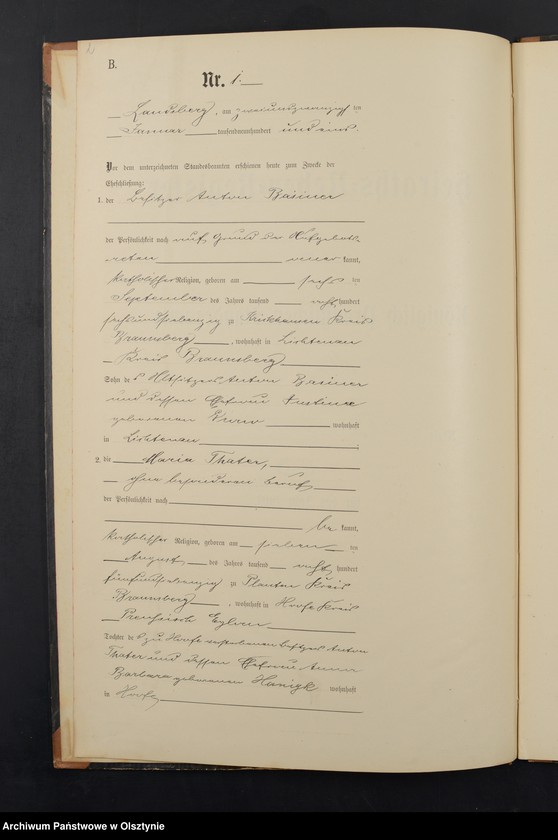 2
B.
Nr. 1.
Landsberg, am zweiundzwanzigsten
Januar tausendneunhundert und eins.
Vor dem unterzeichneten Standesbeamten erschienen heute zum Zwecke der
Eheschließung:
1. der Besitzer Anton
der Persönlichkeit nach auf Grund der Aufgebots-
acten kannt,
katholischer Religion, geboren am sechs ten
September des Jahres tausend acht hundert
sechsundsiebenzig zu Kreis
Braunsberg, wohnhaft in Lichtenau
Kreis Braunsberg
Sohn des Altsitzers Anton
und dessen Ehefrau Justine
geborenen wohnhaft
in Lichtenau
2. die Maria Thater,
ohne besonderen Beruf
der Persönlichkeit nach
be kannt,
katholischer Religion, geboren am sieben ten
August des Jahres tausend acht hundert
fünfundsiebenzig zu Plauten Kreis
Braunsberg, wohnhaft in Hoofe Kreis
Preußisch Eylau
Tochter des zu Hoofe verstorbenen Besitzers Anton
Thater und dessen Ehefrau Anna
Barbara geborenen wohnhaft
in Hoofe
Archiwum Państwowe w Olsztynie